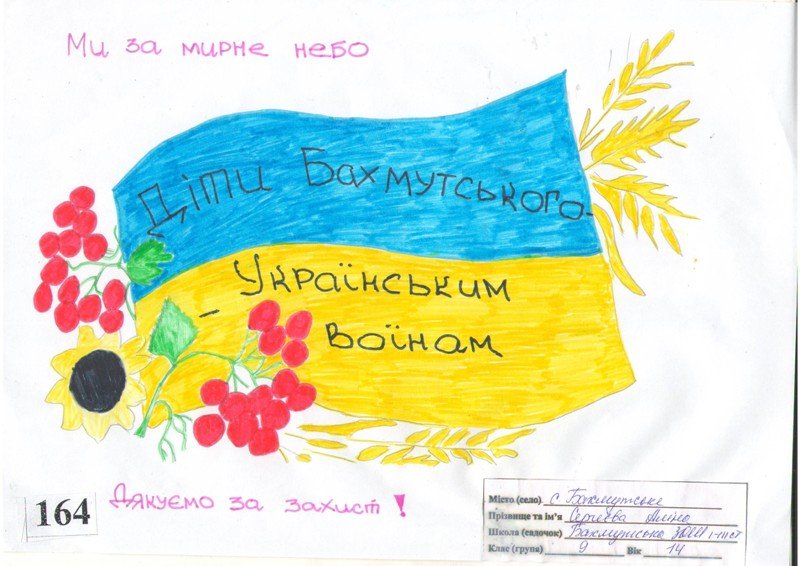 Ми за мирне небо
Діти Бахмутського-
- Українським
воїнам
164
Дякуємо за захист!
Місто (село) с Бахмутське
Прізвище та ім'я Сергєєва Аліна
Школа (садочок) Бахмутська ЗОШ І-ІІІ ст
Клас (група) 9 Вік 14